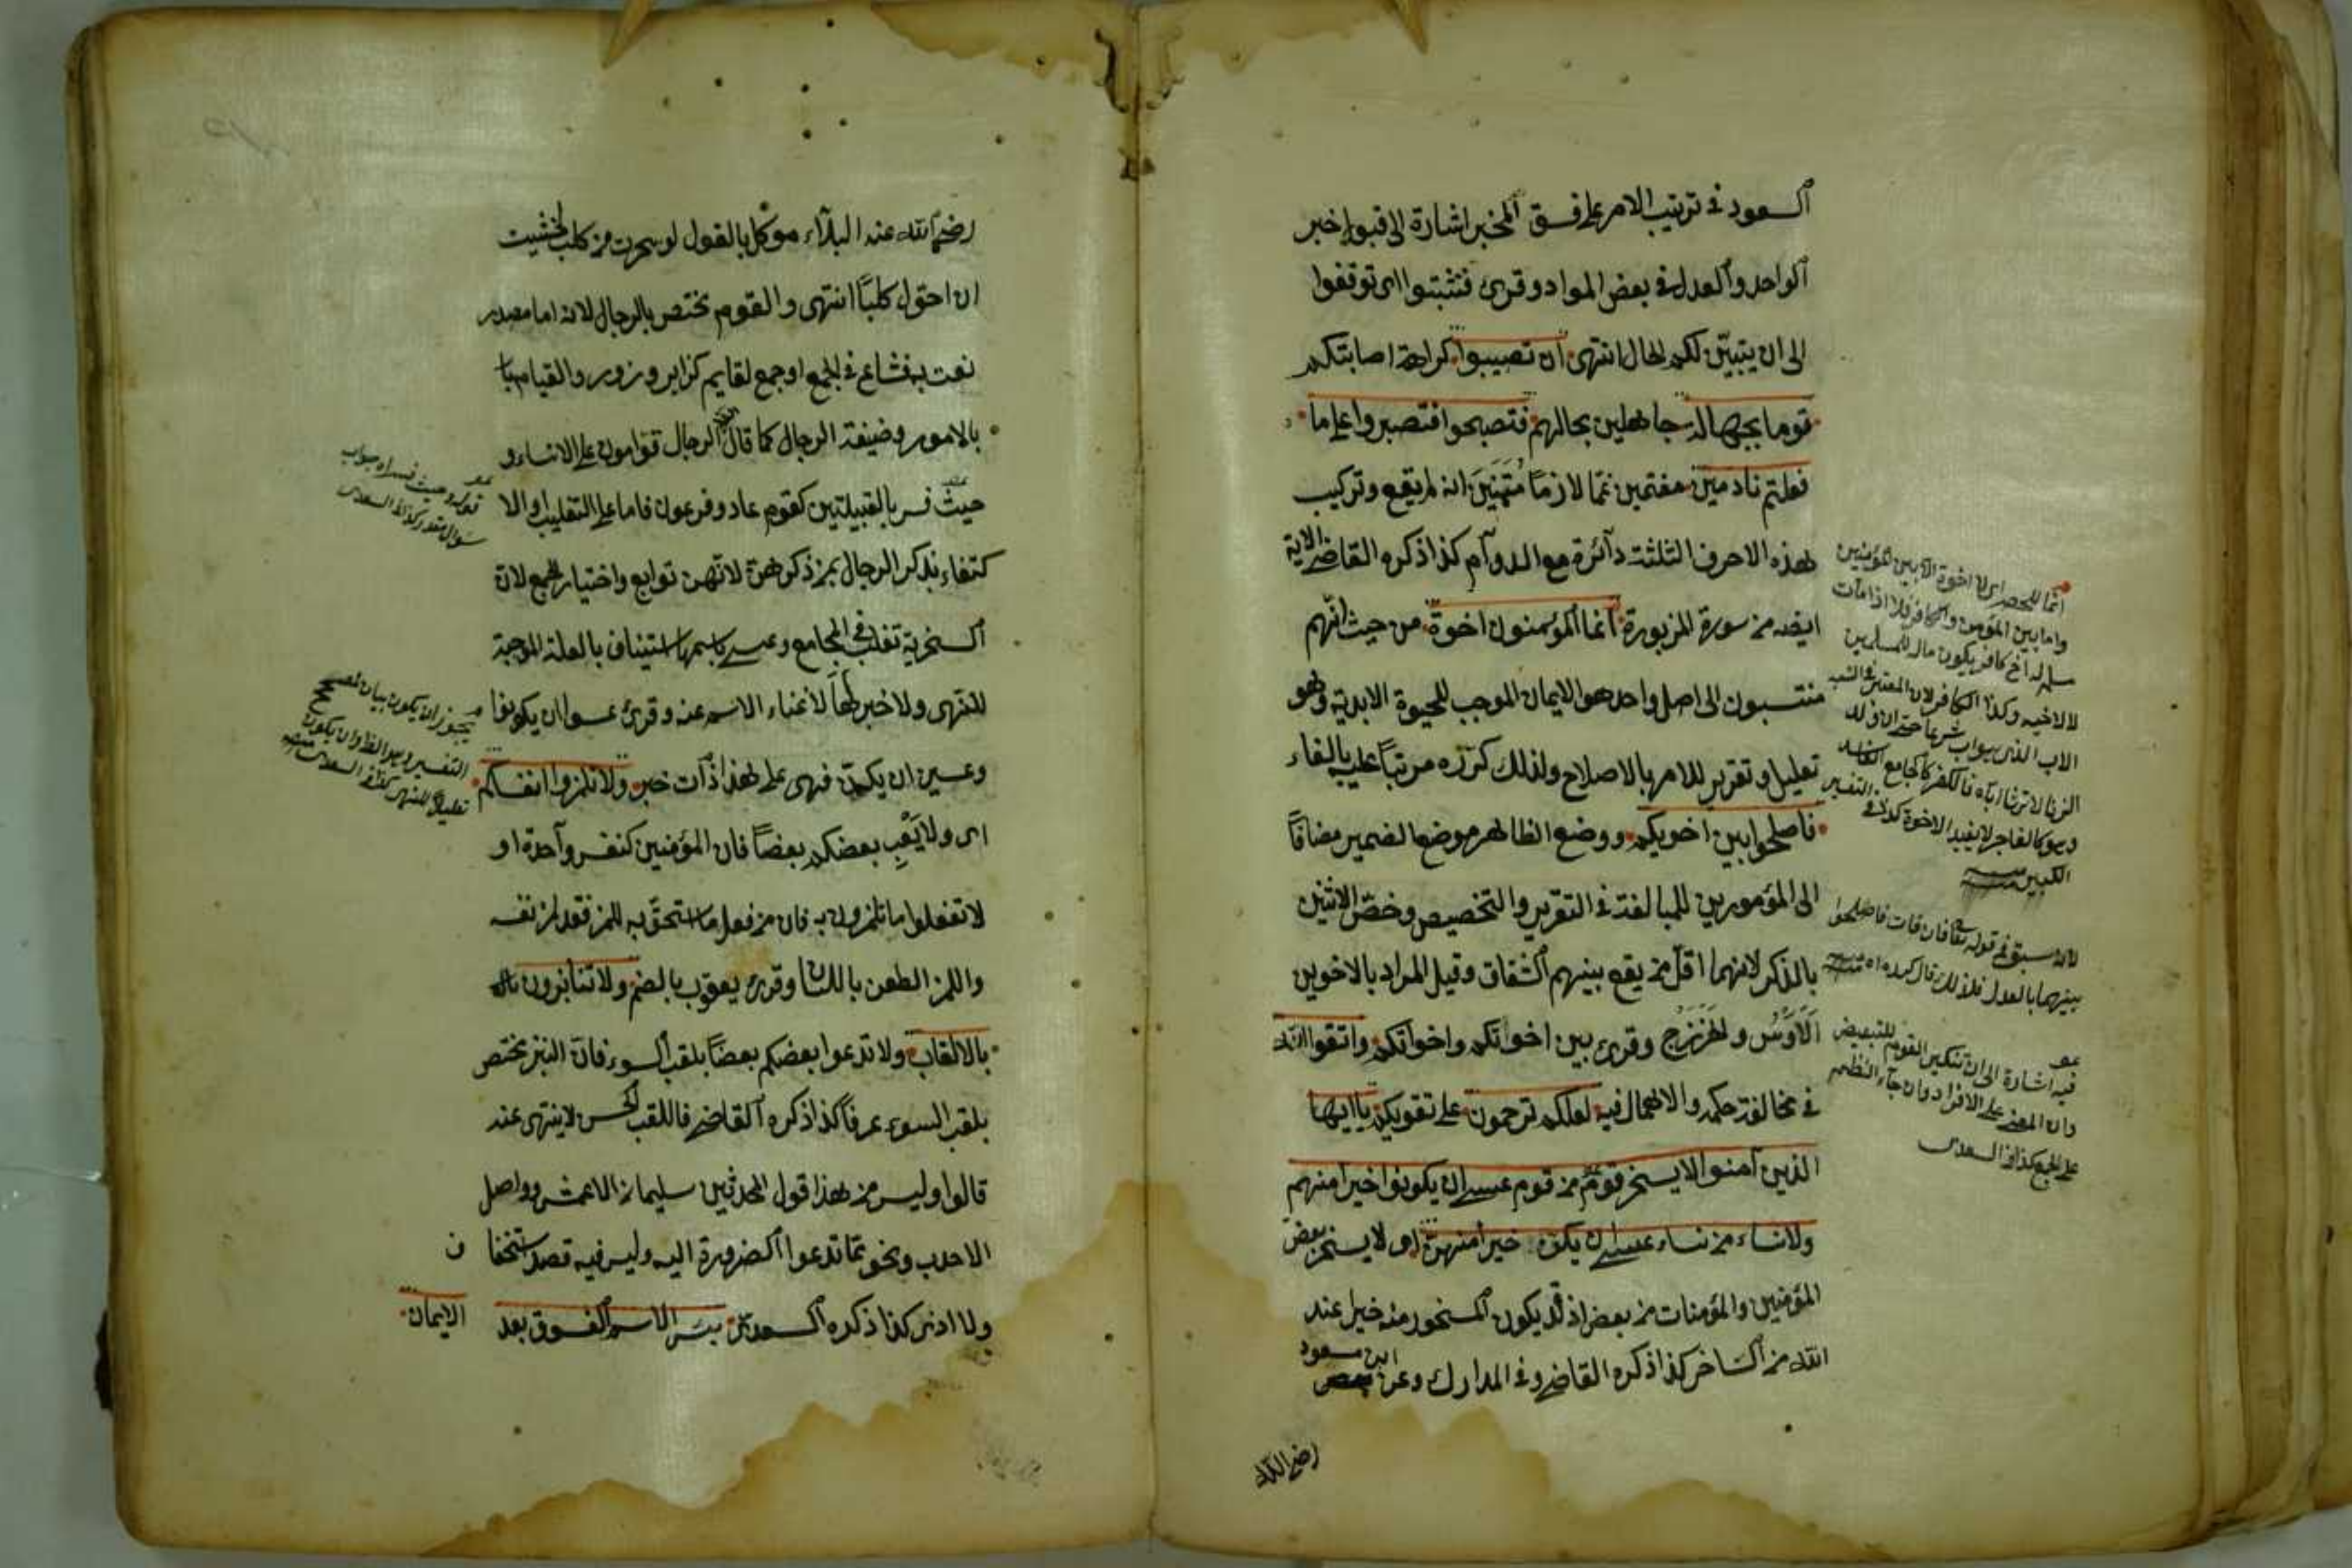 السعود في ترتيب الامر على فسق المخبر اشارة الى قبول خبر
الواحد والعدل في بعض المواد وقرئ فتثبتوا اى توقفوا
الى ان يتبيّن لكم الحال انتهى ان تصيبوا كراهة اصابتكم
قوما بجهالة جاهلين بحالهم فتصبحوا فتصيروا على ما
فعلتم نادمين مغتمين غمّا لازمًا مُتَمَنِّينَ انه لم يقع وتركيب
هذه الاحرف الثلثة دآئرة مع الدوآم كذا ذكره القاضى الاية
ايضه من سورة المزبورة انما المؤمنون اخوة من حيث انّهم
منتسبون الى اصل واحد هو الايمان الموجب للحيوة الابدية وهو
تعليل وتقرير للامر بالاصلاح ولذلك كرّره مرتباً عليه بالفاء
فاصلحوا بين اخويكم ووضع الظاهر موضع الضمير مضافًا
الى المؤمورين للمبالغة في التقرير والتخصيص وخصّ الاثنين
بالذكر لانهما اقلّ من يقع بينهم الشقاق وقيل المراد بالاخوين
الاوس والخزرج وقرئ بين اخوتكم واخوانكم واتقوا الله
في مخالفة حكمه والاهمال فيه لعلكم ترحمون على تقويكم ياايها
الذين آمنوا لا يسخر قومٌ من قوم عسى ان يكونوا خيرا منهم
ولا نساء من نساء عسى ان يكن خيرا منهن اى لا يسخر بعض
المؤمنين والمؤمنات من بعض اذ قد يكون المسخور منه خيرا عند
الله من الساخر كذا ذكره القاضى وفي المدارك وعن ابن مسعود
رضى الله
انما للحصر اى لا اخوة الا بين المؤمنين
واما بين المؤمن والكافر فلا اذا مات
مسلم له اخ كافر يكون ماله للمسلمين
لا لاخيه وكذا الكافر لان المعتبر في النسب
الاب الذى هو اب شرعا حتى ان ولد
الزنا لا ترث اباه فالكفر كالجامع الفاسد
وهو كالفاجر لا يفيد الاخوة كذا في التفسير
الكبير منه
لانه سبق في قوله تعالى فان فاءت فاصلحوا
بينهما بالعدل فلذلك قال كرره منه
فيه اشارة الى ان تنكير القوم للتبعيض
وان المعنى على الافراد وان جآء النظم
على الجمع كذا في السعدى
رضى الله عنه البلاء موكل بالقول لو سخرت من كلب لخشيت
ان احوّل كلبًا انتهى والقوم تختص بالرجال لانه اما مصدر
نعت به فشاع في الجمع او جمع لقايم كزاير وزور والقيام
بالامور وضيفة الرجال كما قال الرجال قوامون على النساء و
حيث فسر بالقبيلتين كقوم عاد وفرعون فاما على التغليب او الا
كتفاء بذكر الرجال عن ذكرهن لانّهن توابع واختيار الجمع لان
السخرية تغلب في المجامع وعسى باسمها استيناف بالعلة الموجبة
للنهى ولا خبر لها لاغناء الاسم عنه وقرئ عسوا ان يكونوا
وعسين ان يكنّ فهى على هذا ذآت خبر ولا تلمزوا انفسكم
اى ولا يَعِب بعضكم بعضًا فان المؤمنين كنفس وآحدة او
لا تفعلوا ما تلمزون به فان من فعل ما استحقّ به اللمز فقد لمز نفسه
واللمز الطعن باللسان وقرئ يعقوب بالضم ولا تنابزوا
بالالقاب ولا تدعوا بعضكم بعضاً بلقب السوء فان النبز يختص
بلقب السوء عرفًا كذا ذكره القاضى فاللقب الحسن لا ينتهى عنه
قالوا وليس من هذا قول المحدثين سليمان الاعمش وواصل
الاحدب ونحو مما تدعوا الضرورة اليه وليس فيه قصد استخفاف
ولا اذى كذا ذكره السعدى بئس الاسم الفسوق بعد
الايمان
قوله وحيث فسر اه جواب
سوال مقدر كذا في السعدى
يجوز ان يكون بيان تصحيح
التفسير وهو الظ وان يكون
تعليلا للنهى كذا في السعدى منه